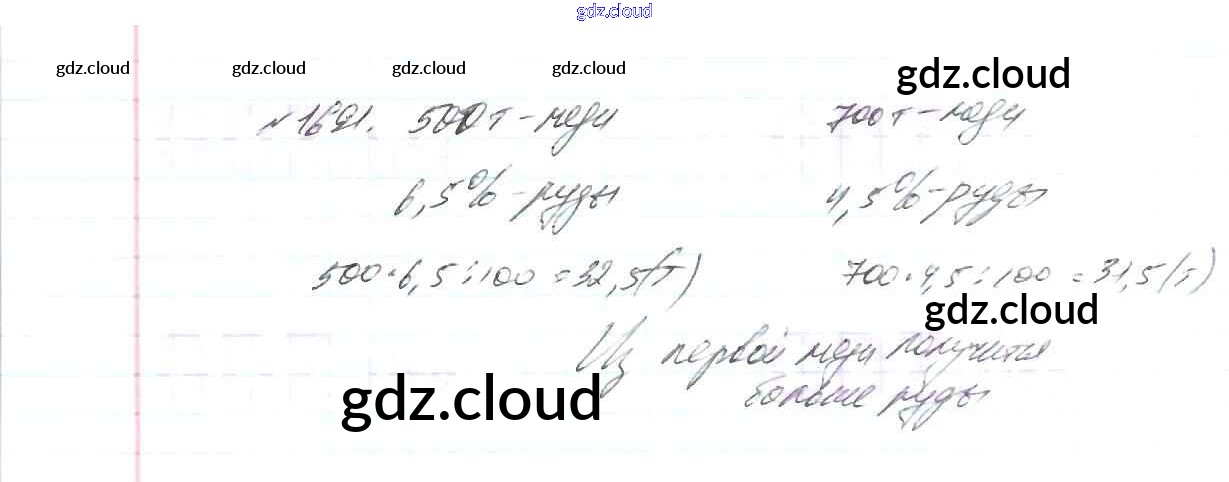 gdz.cloud
gdz.cloud gdz.cloud gdz.cloud gdz.cloud gdz.cloud
№1691. 500т - меди 700т - меди
6,5% - руды 4,5% - руды
500·6,5:100 = 32,5(т) 700·4,5:100 = 31,5(т)
gdz.cloud
Из первой меди получится
gdz.cloud
больше руды